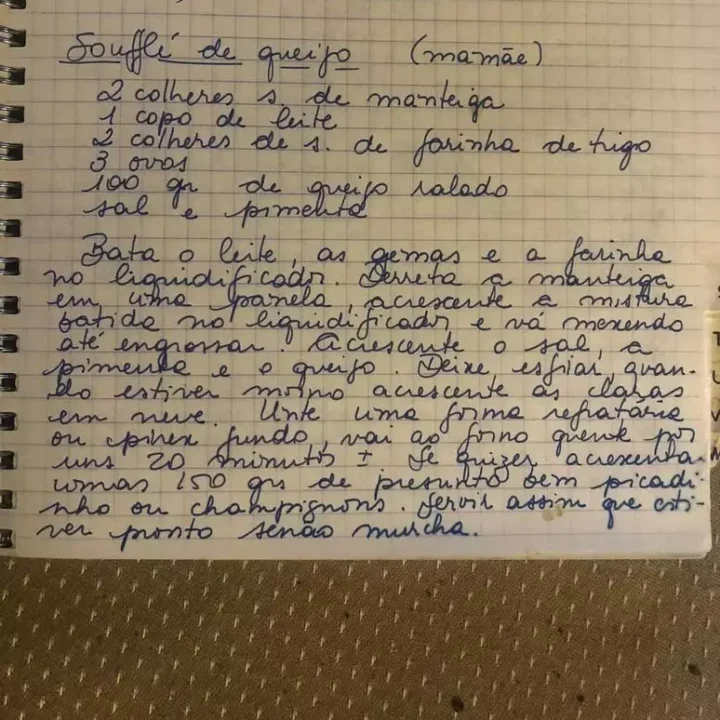 Soufflé de queijo (mamãe)
2 colheres s. de manteiga
1 copo de leite
2 colheres de s. de farinha de trigo
3 ovos
100 gr de queijo ralado
sal e pimenta
Bata o leite, as gemas e a farinha
no liquidificador. Derreta a manteiga
em uma panela, acrescente a mistura
batida no liquidificador e vá mexendo
até engrossar. Acrescente o sal, a
pimenta e o queijo. Deixe esfriar, quan-
do estiver morno acrescente as claras
em neve. Unte uma forma refratária
ou pirex fundo, vai ao forno quente por
uns 20 minutos ± Se quizer acrescenta
umas 150 grs de presunto bem picadi-
nho ou champignons. Servir assim que esti-
ver pronto senão murcha.